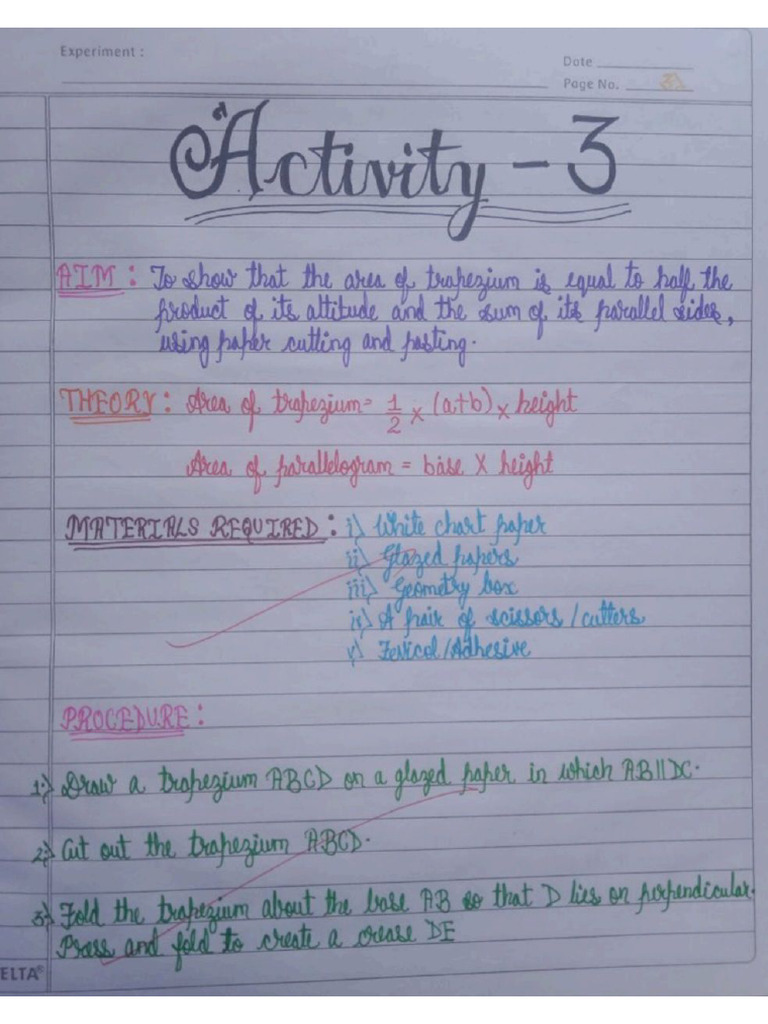 Experiment :
Date
Page No.
Activity - 3
AIM : To show that the area of trapezium is equal to half the
product of its attitude and the sum of its parallel sides,
using paper cutting and pasting.
THEORY : Area of trapezium = 1/2 × (a+b) × height
Area of parallelogram = base × height
MATERIALS REQUIRED : i) White chart paper
ii) Glazed papers
iii) Geometry box
iv) A pair of scissors / cutters
v) Fevicol / Adhesive
PROCEDURE :
1.) Draw a trapezium ABCD on a glazed paper in which AB || DC.
2.) Cut out the trapezium ABCD.
3.) Fold the trapezium about the base AB so that D lies on perpendicular.
Press and fold to create a crease DE
ELTA®